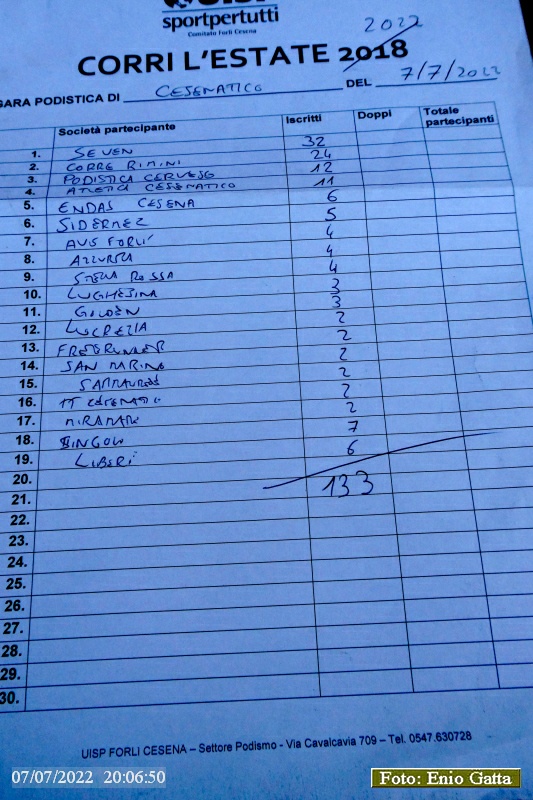 UISP
sportpertutti
Comitato Forlì Cesena
2022
CORRI L'ESTATE 2018
GARA PODISTICA DI CESENATICO DEL 7/7/2022
Società partecipante Iscritti Doppi Totale partecipanti
1. SEVEN 32
2. CORRE RIMINI 24
3. PODISTICA CERVESE 12
4. ATLETICA CESENATICO 11
5. ENDAS CESENA 6
6. SIDERMEC 5
7. AVIS FORLI' 4
8. AZZURRA 4
9. STELLA ROSSA 4
10. LUGHESINA 3
11. GOLDEN 3
12. LUCREZIA 2
13. 2
14. SAN MARINO 2
15. 2
16. CESENATICO 2
17. MIRAMARE 2
18. SINGOLI 7
19. LIBERI 6
20. 133
21.
22.
23.
24.
25.
26.
27.
28.
29.
30.
UISP FORLI CESENA – Settore Podismo - Via Cavalcavia 709 – Tel. 0547.630728
07/07/2022 20:06:50
Foto: Enio Gatta